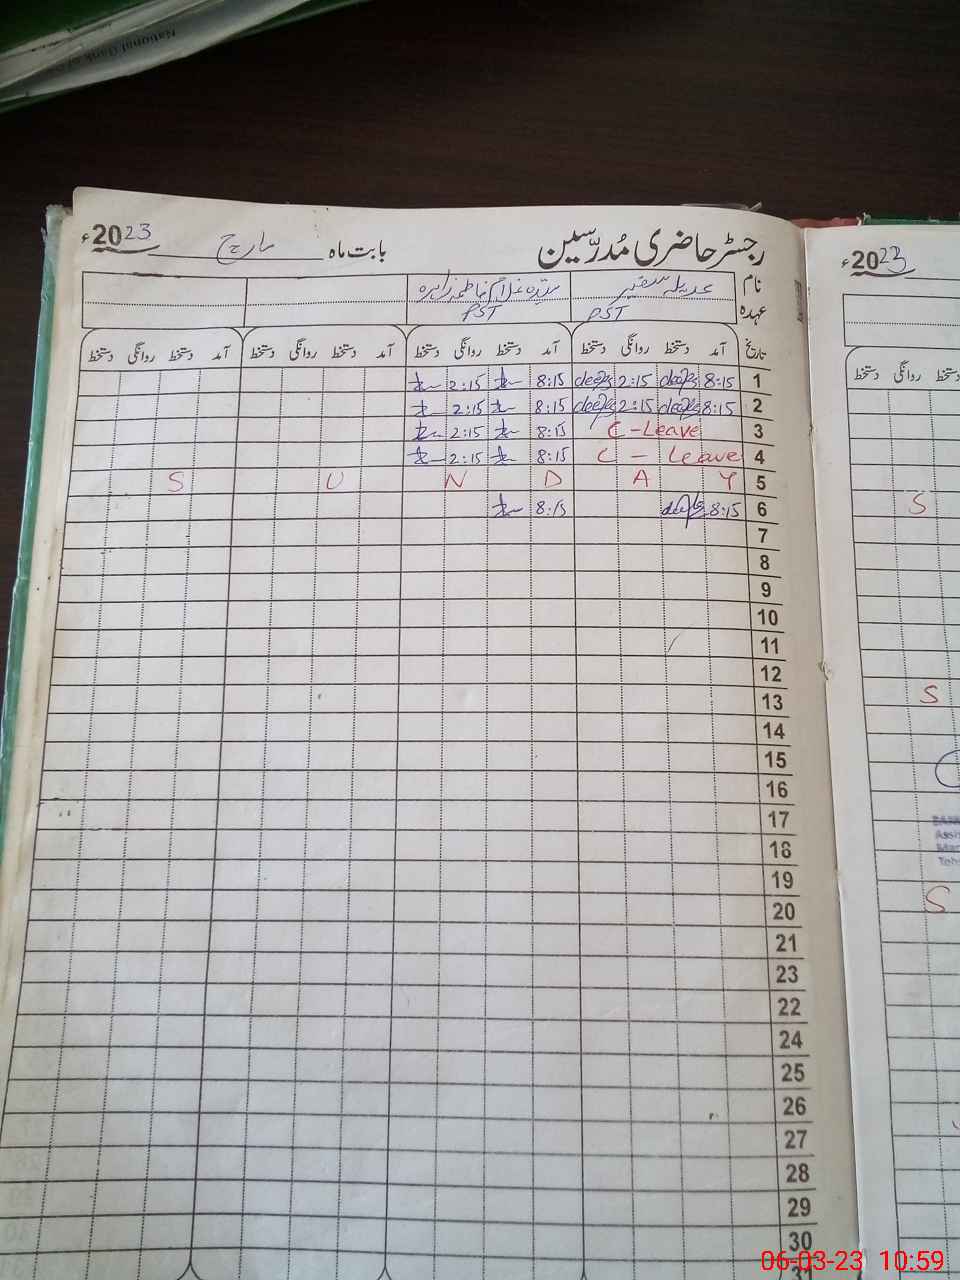 National Bank of
رجسٹر حاضری مُدرّسین بابت ماہ مارچ 2023ء
نام
عہدہ PST PST
تاریخ آمد دستخط روانگی دستخط آمد دستخط روانگی دستخط آمد دستخط روانگی دستخط آمد دستخط روانگی دستخط
1 8:15 2:15 8:15 2:15
2 8:15 2:15 8:15 2:15
3 C-Leave 8:15 2:15
4 C - Leave 8:15 2:15
5 S U N D A Y
6 8:15 8:15
7
8
9
10
11
12
13
14
15
16
17
18
19
20
21
23
22
24
25
26
27
28
29
30
31
2023ء
دستخط روانگی دستخط
S
S
S
06-03-23 10:59